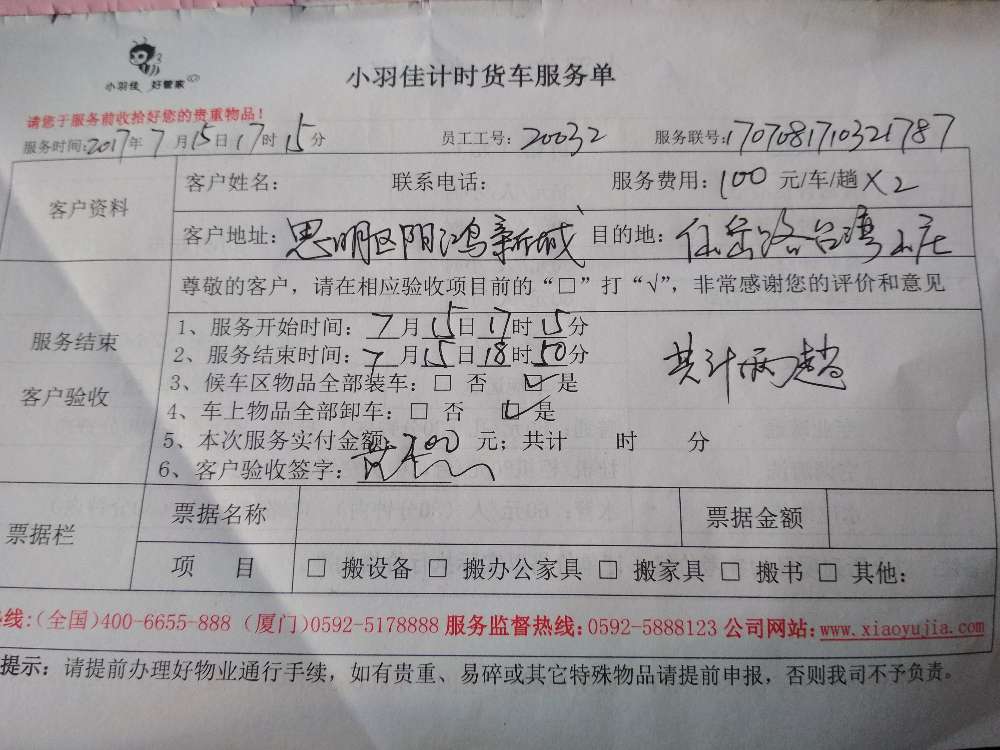 小羽佳 好管家
小羽佳计时货车服务单
请您于服务前收拾好您的贵重物品!
服务时间:2017年7月15日17时15分 员工工号:20032 服务联号:1707081710321787
客户资料
客户姓名: 联系电话: 服务费用:100元/车/趟×2
客户地址:思明区阳鸿新城 目的地:仙岳路台湾山庄
尊敬的客户,请在相应验收项目前的“□”打“√”,非常感谢您的评价和意见
服务结束
客户验收
1、服务开始时间:7月15日17时15分
2、服务结束时间:7月15日18时50分
3、候车区物品全部装车:□ 否 ☑ 是
4、车上物品全部卸车:□ 否 ☑ 是
共计两趟
5、本次服务实付金额200元;共计 时 分
6、客户验收签字:
票据栏
票据名称 票据金额
项 目 □ 搬设备 □ 搬办公家具 □ 搬家具 □ 搬书 □ 其他:
线:(全国)400-6655-888 (厦门)0592-5178888 服务监督热线:0592-5888123 公司网站:www.xiaoyujia.com
提示:请提前办理好物业通行手续,如有贵重、易碎或其它特殊物品请提前申报,否则我司不予负责。